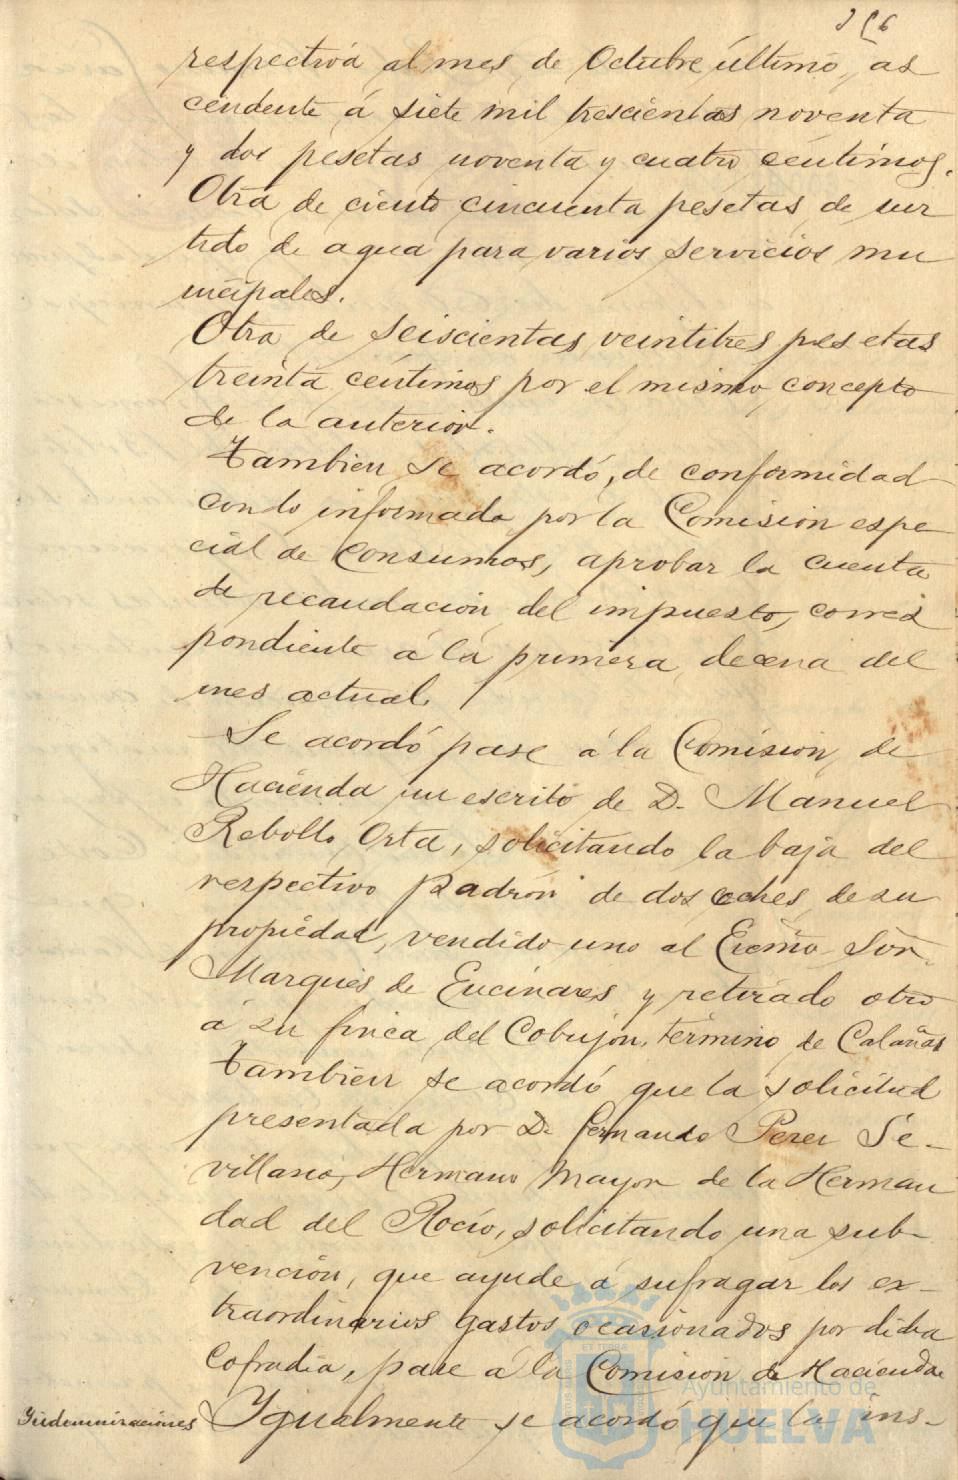 respectiva al mes de Octubre último, as
cendente á siete mil trescientas noventa
y dos pesetas noventa y cuatro céntimos.
Otra de ciento cincuenta pesetas de sur
tido de agua para varios servicios mu
nicipales.
Otra de seiscientas veintitres pesetas
treinta céntimos por el mismo concepto
de la anterior.
Tambien se acordó, de conformidad
con lo informado por la Comision espe
cial de Consumos, aprobar la cuenta
de recaudacion del impuesto, corres
pondiente á la primera decena del
mes actual.
Se acordó pase á la Comision de
Hacienda un escrito de D. Manuel
Rebollo Orta, solicitando la baja del
respectivo padrón de dos coches de su
propiedad, vendido uno al Excmo Sor.
Marqués de Encinares y retirado otro
á su finca del Cobujon, término de Calañas
Tambien se acordó que la solicitud
presentada por D. Fernando Perez Se-
villano, Hermano Mayor de la Herman
dad del Rocío, solicitando una sub-
vención, que ayude á sufragar los ex-
traordinarios gastos ocasionados por dicha
Cofradia, pase á la Comision de Hacienda
Yndemnizaciones Ygualmente se acordó que la ins-
Ayuntamiento de
HUELVA